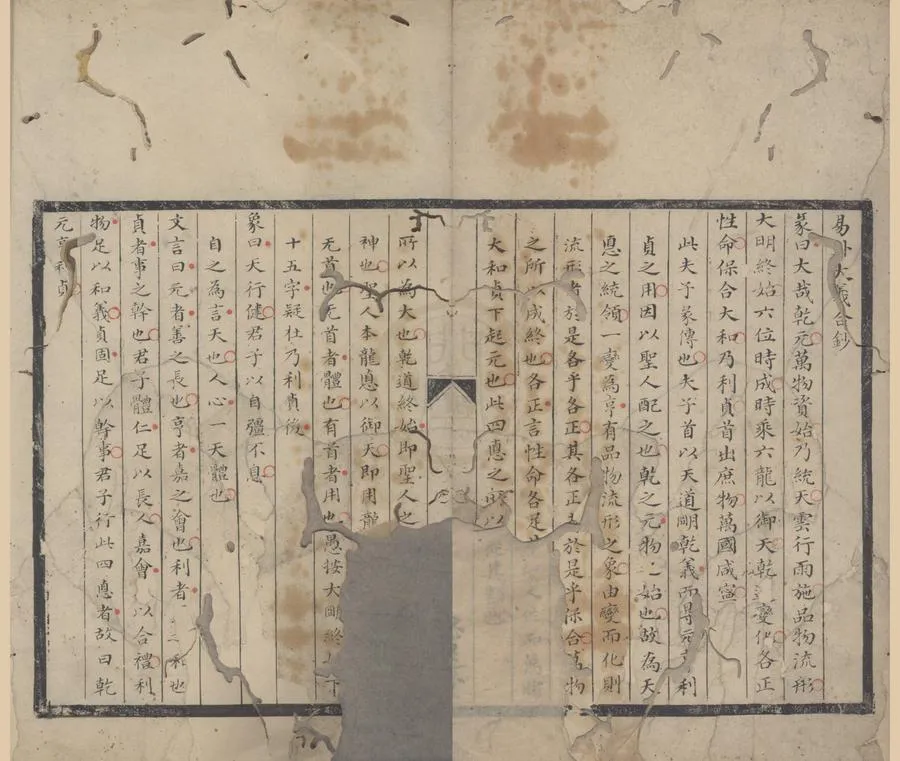 易 大義合鈔
彖曰大哉乾元萬物資始乃統天雲行雨施品物流形
大明終始六位時成時乘六龍以御天乾 變化各正
性命保合大和乃利貞首出庶物萬國咸寧
此夫子彖傳也夫子首以天道明乾義而 元 利
貞之用因以聖人配之也乾之元物 始也故為天
悳之統領一變為亨有品物流形之象由變而化則
流形 於是各乎各正其各正 於是乎保合 物
之所以成終也各正言性命各足
大和貞下起元也此四悳之 以
所以為大也乾道終始即聖人之
神也聖人本龍悳以御天即用
无首也无首者體也有首者用也愚按大明終 下
十五字疑在乃利貞後
象曰天行健君子以自彊不息
自之為言天也人心一天體也
文言曰元者善之長也亨者嘉之會也利者 之和也
貞者事之幹也君子體仁足以長人嘉會 以合禮利
物足以和義貞固足以幹事君子行此四悳者故曰乾
元亨利貞